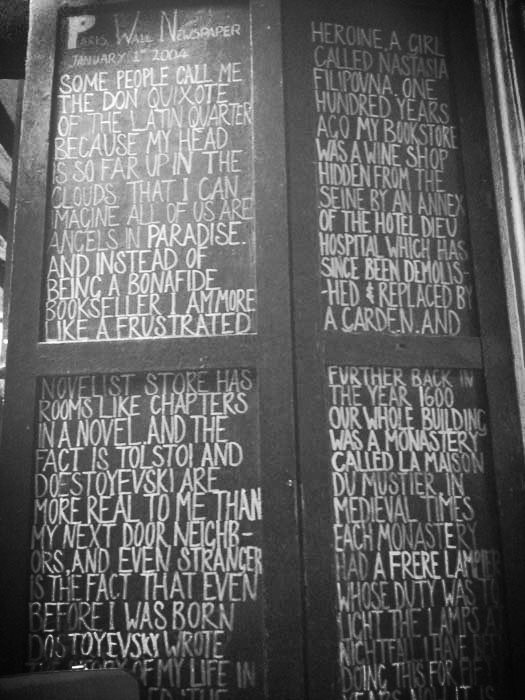 PARIS WALL NEWSPAPER
JANUARY 1ST 2004
SOME PEOPLE CALL ME
THE DON QUIXOTE
OF THE LATIN QUARTER
BECAUSE MY HEAD
IS SO FAR UP IN THE
CLOUDS THAT I CAN
IMAGINE ALL OF US ARE
ANGELS IN PARADISE.
AND INSTEAD OF
BEING A BONAFIDE
BOOKSELLER I AM MORE
LIKE A FRUSTRATED
NOVELIST STORE HAS
ROOMS LIKE CHAPTERS
IN A NOVEL. AND THE
FACT IS TOLSTOI AND
DOESTOYEVSKI ARE
MORE REAL TO ME THAN
MY NEXT DOOR NEIGHB-
ORS, AND EVEN STRANGER
IS THE FACT THAT EVEN
BEFORE I WAS BORN
DOSTOYEVSKY WROTE
THE STORY OF MY LIFE IN
THE
HEROINE, A GIRL
CALLED NASTASIA
FILIPOVNA. ONE
HUNDRED YEARS
AGO MY BOOKSTORE
WAS A WINE SHOP
HIDDEN FROM THE
SEINE BY AN ANNEX
OF THE HOTEL DIEU
HOSPITAL WHICH HAS
SINCE BEEN DEMOLIS-
-HED & REPLACED BY
A GARDEN. AND
FURTHER BACK IN
THE YEAR 1600
OUR WHOLE BUILDING
WAS A MONASTERY
CALLED LA MAISON
DU MUSTIER. IN
MEDIEVAL TIMES
EACH MONASTERY
HAD A FRERE LAMPIER
WHOSE DUTY WAS TO
LIGHT THE LAMPS AT
NIGHTFALL I HAVE BEEN
DOING THIS FOR